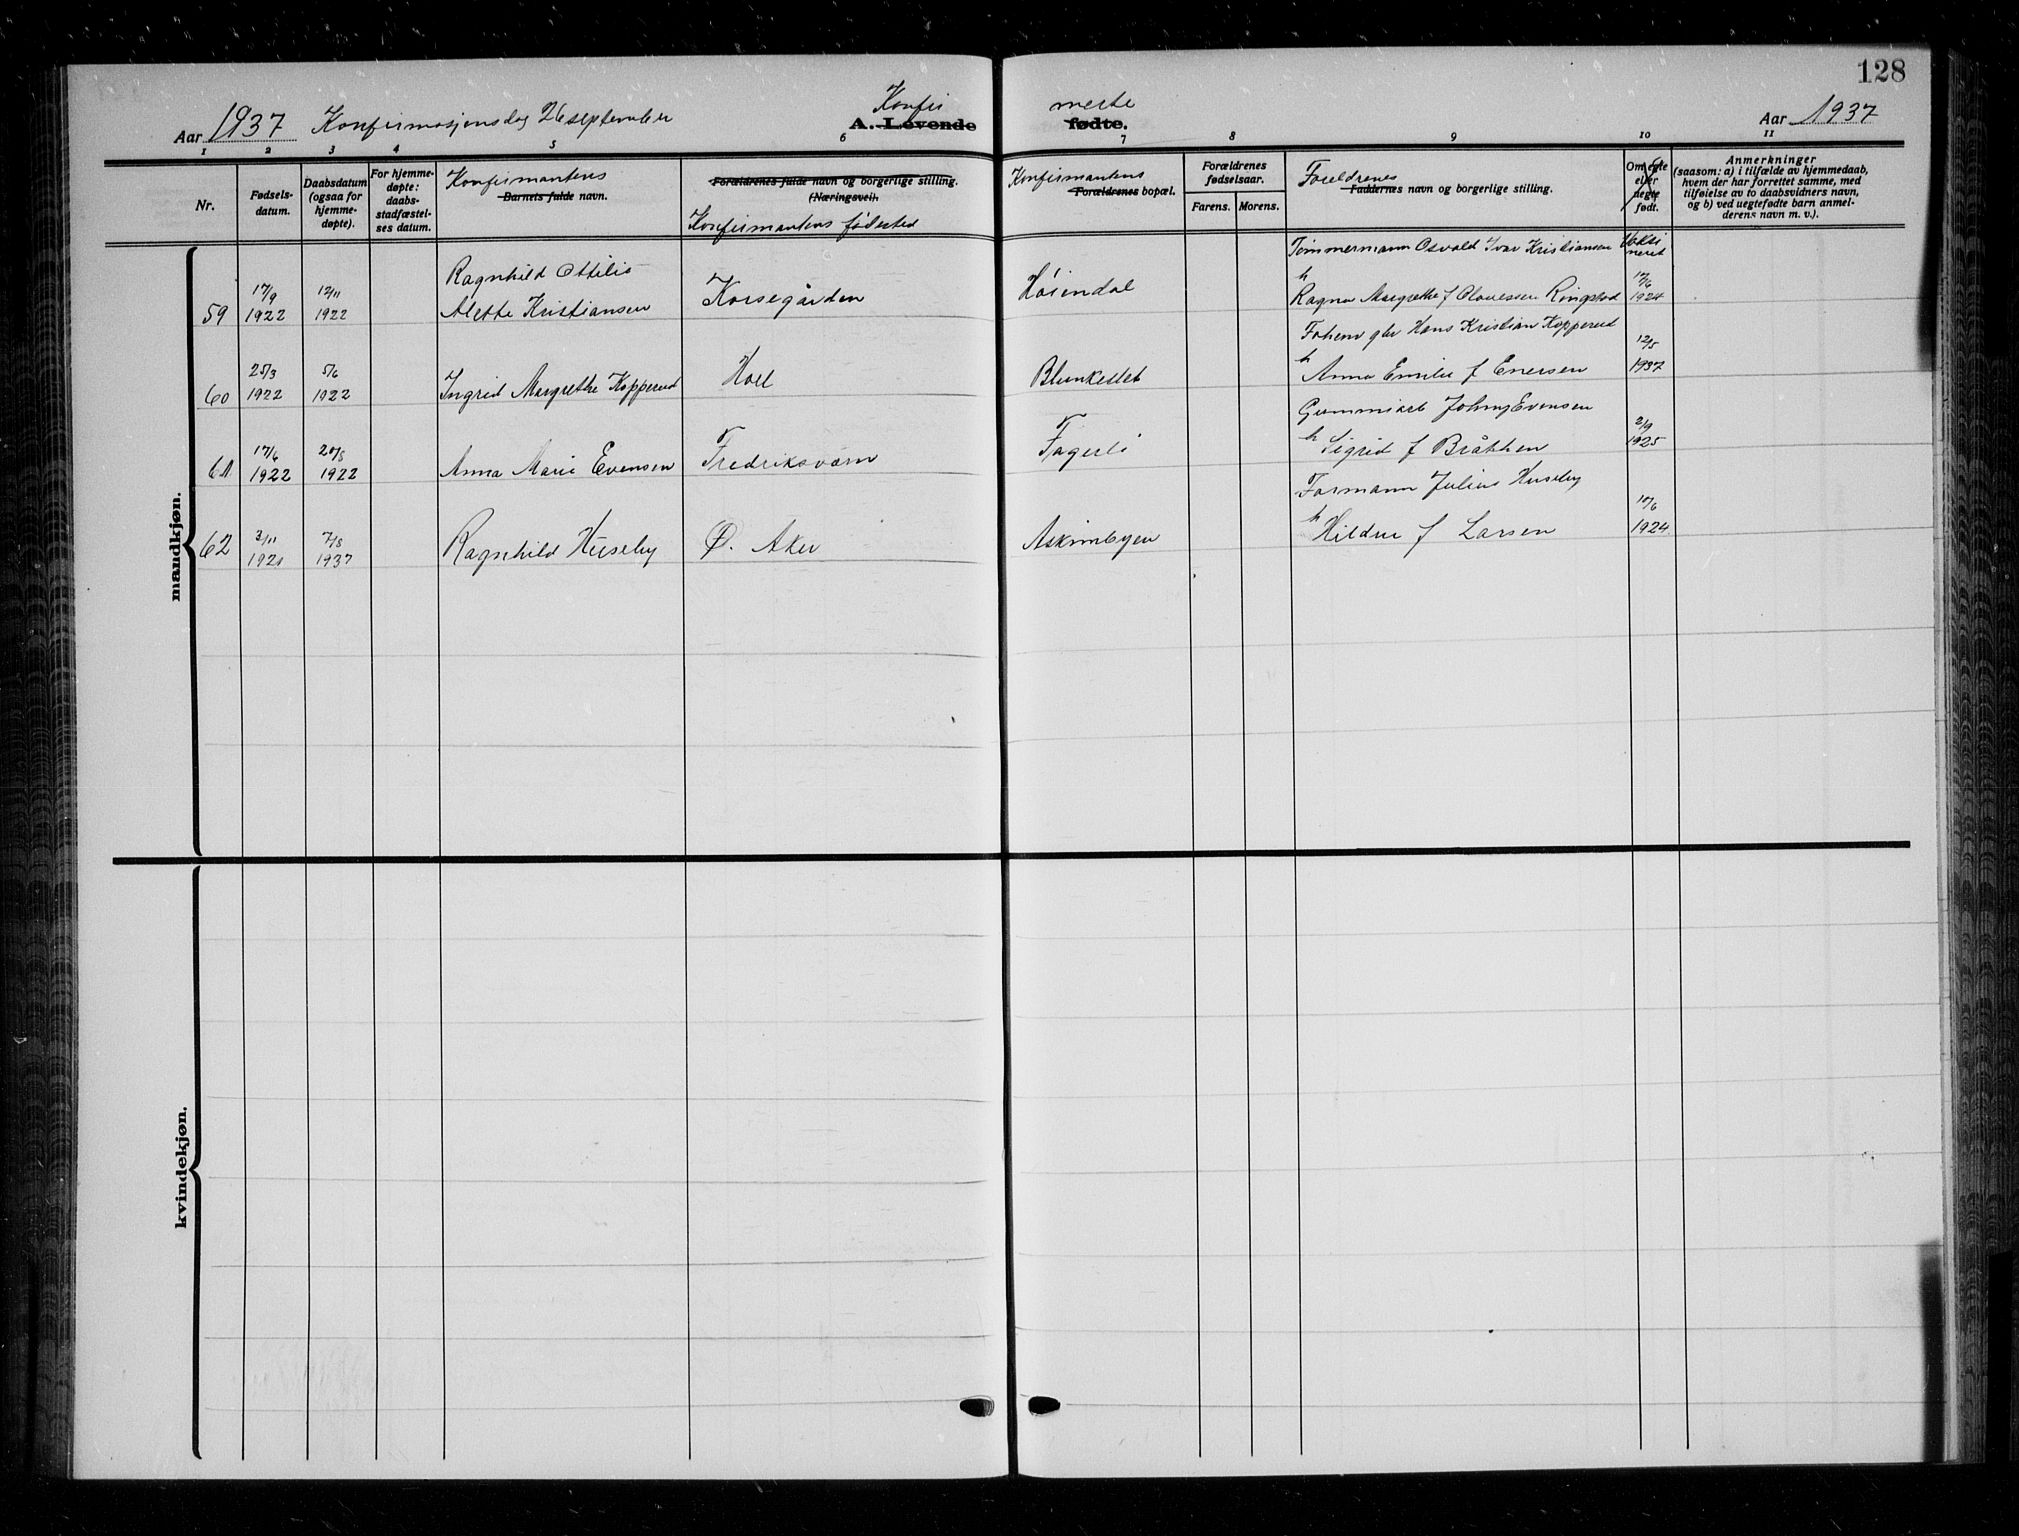 128
Aar 1937 Konfirmasjonsdag 26 september
Konfir merte
A. Levende fødte.
Aar 1937
1 2 3 4 5 6 7 8 9 10 11
Nr.
Fødsels-
datum.
Daabsdatum
(ogsaa for
hjemme-
døpte).
For hjemme-
døpte:
daabs-
stadfæstel-
ses datum.
Konfirmantens
Barnets fulde navn.
Forældrenes fulde navn og borgerlige stilling.
(Næringsvei).
Konfirmantens fødested
Konfirmantens
Forældrenes bopæl.
Forældrenes
fødselsaar.
Farens. Morens.
Foreldrenes
Faddernes navn og borgerlige stilling.
Om egte
eller
uegte
født.
Anmerkninger
(saasom: a) i tilfælde av hjemmedaab,
hvem der har forrettet samme, med
tilføielse av to daabsvidners navn,
og b) ved uegtefødte barn anmel-
derens navn m. v.).
mandkjøn.
59
17/9
1922
12/11
1922
Ragnhild Ottilie
Alette Kristiansen
Korsegården
Høiendal
Tømmermann Osvald Ivar Kristiansen
h
Ragna Margrethe f Olavessen Ringstad
Vaksi
neret
1924
60
25/3
1922
5/6
1922
Ingrid Margrethe Kopperud
Holl
Blunkeslet
Hans Kristian Kopperud
h
Anna Emilie f Enersen
12/5
1937
61
17/6
1922
20/8
1922
Anna Marie Evensen
Fredriksværn
Fagerli
Gummiarb Johny Evensen
h Sigrid f Bråthen
2/9
1925
62
3/11
1921
7/8
1937
Ragnhild Huseby
Ø. Aker
Askimbyen
Formann Julius Huseby
h
Hildur f Larsen
10/6
1924
kvindekjøn.